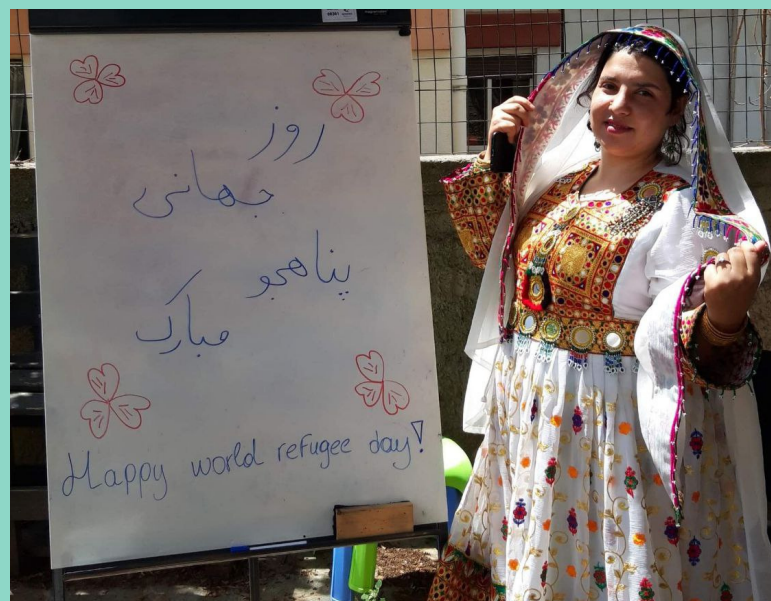 روز
جهانی
پناهجو
مبارک
Happy world refugee day!